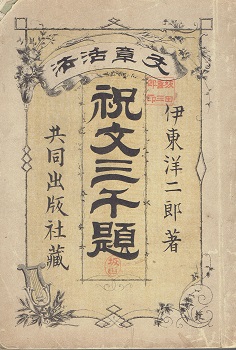 文章活法
伊東洋二郎著
祝文三千題
共同出版社藏